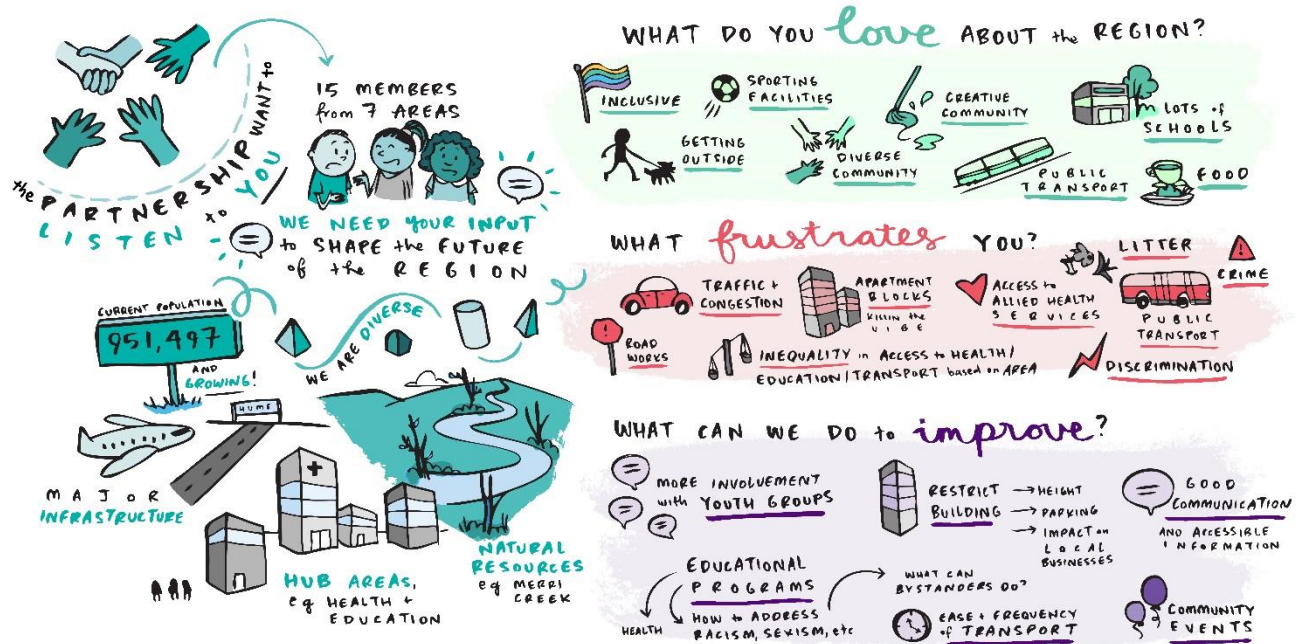 the PARTNERSHIP WANT to
LISTEN to YOU
15 MEMBERS
from 7 AREAS
WE NEED YOUR INPUT
to SHAPE the FUTURE
of the REGION
CURRENT POPULATION
951,497
AND
GROWING!
WE ARE DIVERSE
HUME
MAJOR
INFRASTRUCTURE
HUB AREAS,
eg HEALTH +
EDUCATION
NATURAL
RESOURCES
eg MERRI
CREEK
WHAT DO YOU love ABOUT the REGION?
INCLUSIVE
SPORTING
FACILITIES
CREATIVE
COMMUNITY
LOTS of
SCHOOLS
GETTING
OUTSIDE
DIVERSE
COMMUNITY
PUBLIC
TRANSPORT
FOOD
WHAT frustrates YOU?
TRAFFIC +
CONGESTION
APARTMENT
BLOCKS
KILLIN the
VIBE
ACCESS to
ALLIED HEALTH
SERVICES
LITTER
CRIME
PUBLIC
TRANSPORT
ROAD
WORKS
INEQUALITY in ACCESS to HEALTH/
EDUCATION/TRANSPORT based on AREA
DISCRIMINATION
WHAT CAN WE DO to improve?
MORE INVOLVEMENT
with YOUTH GROUPS
RESTRICT
BUILDING
HEIGHT
PARKING
IMPACT on
LOCAL
BUSINESSES
GOOD
COMMUNICATION
AND ACCESSIBLE
INFORMATION
EDUCATIONAL
PROGRAMS
HEALTH
HOW to ADDRESS
RACISM, SEXISM, etc
WHAT CAN
BYSTANDERS DO?
EASE + FREQUENCY
of TRANSPORT
COMMUNITY
EVENTS